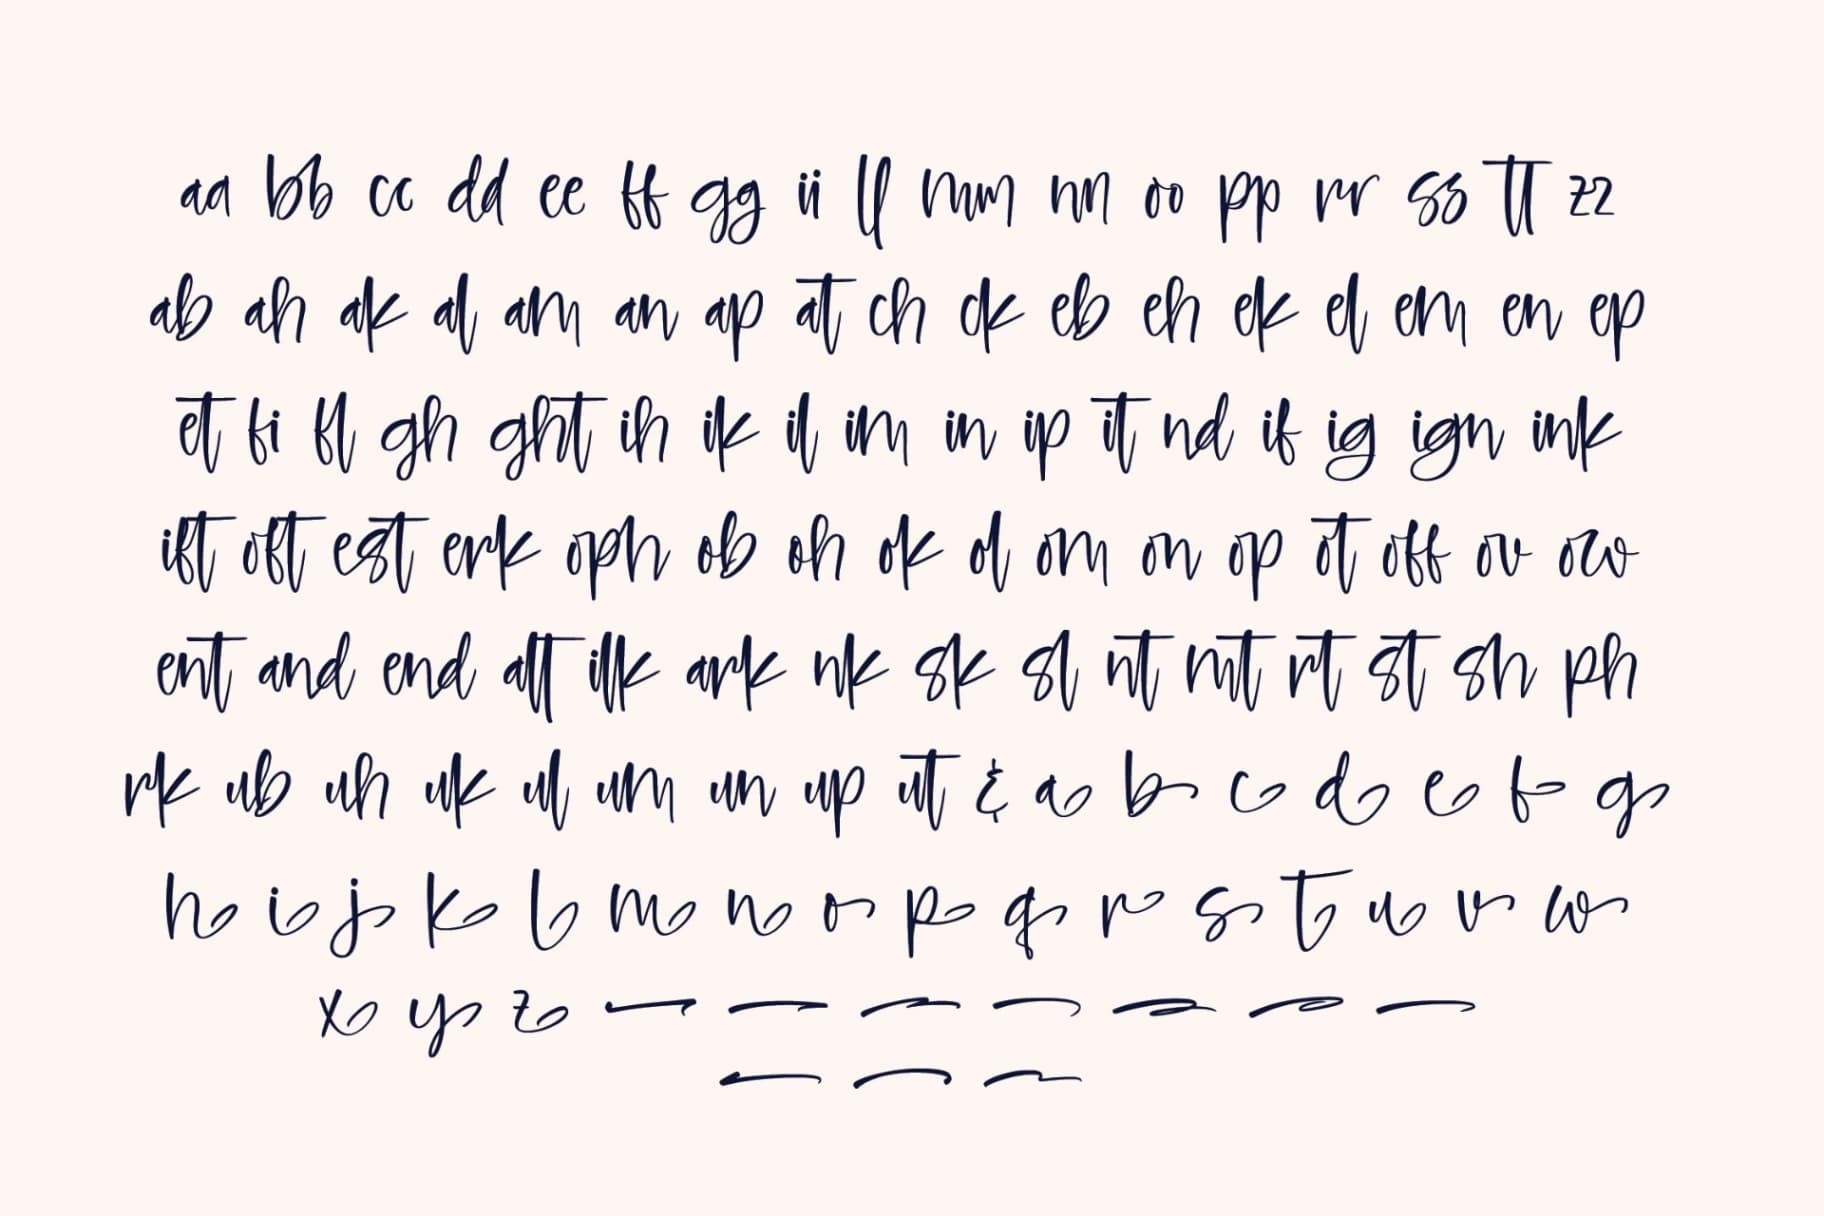 aa bb cc dd ee ff gg ii ll mm nn oo pp rr ss tt zz
ab ah ak al am an ap at ch ck eb eh ek el em en ep
et fi fl gh ght ih ik il im in ip it nd if ig ign ink
ift oft est erk oph ob oh ok ol om on op ot off ov ow
ent and end att ilk ark nk sk sl nt mt rt st sh ph
rk ub uh uk ul um un up ut & a b c d e f g
h i j k l m n o p q r s t u v w
x y z